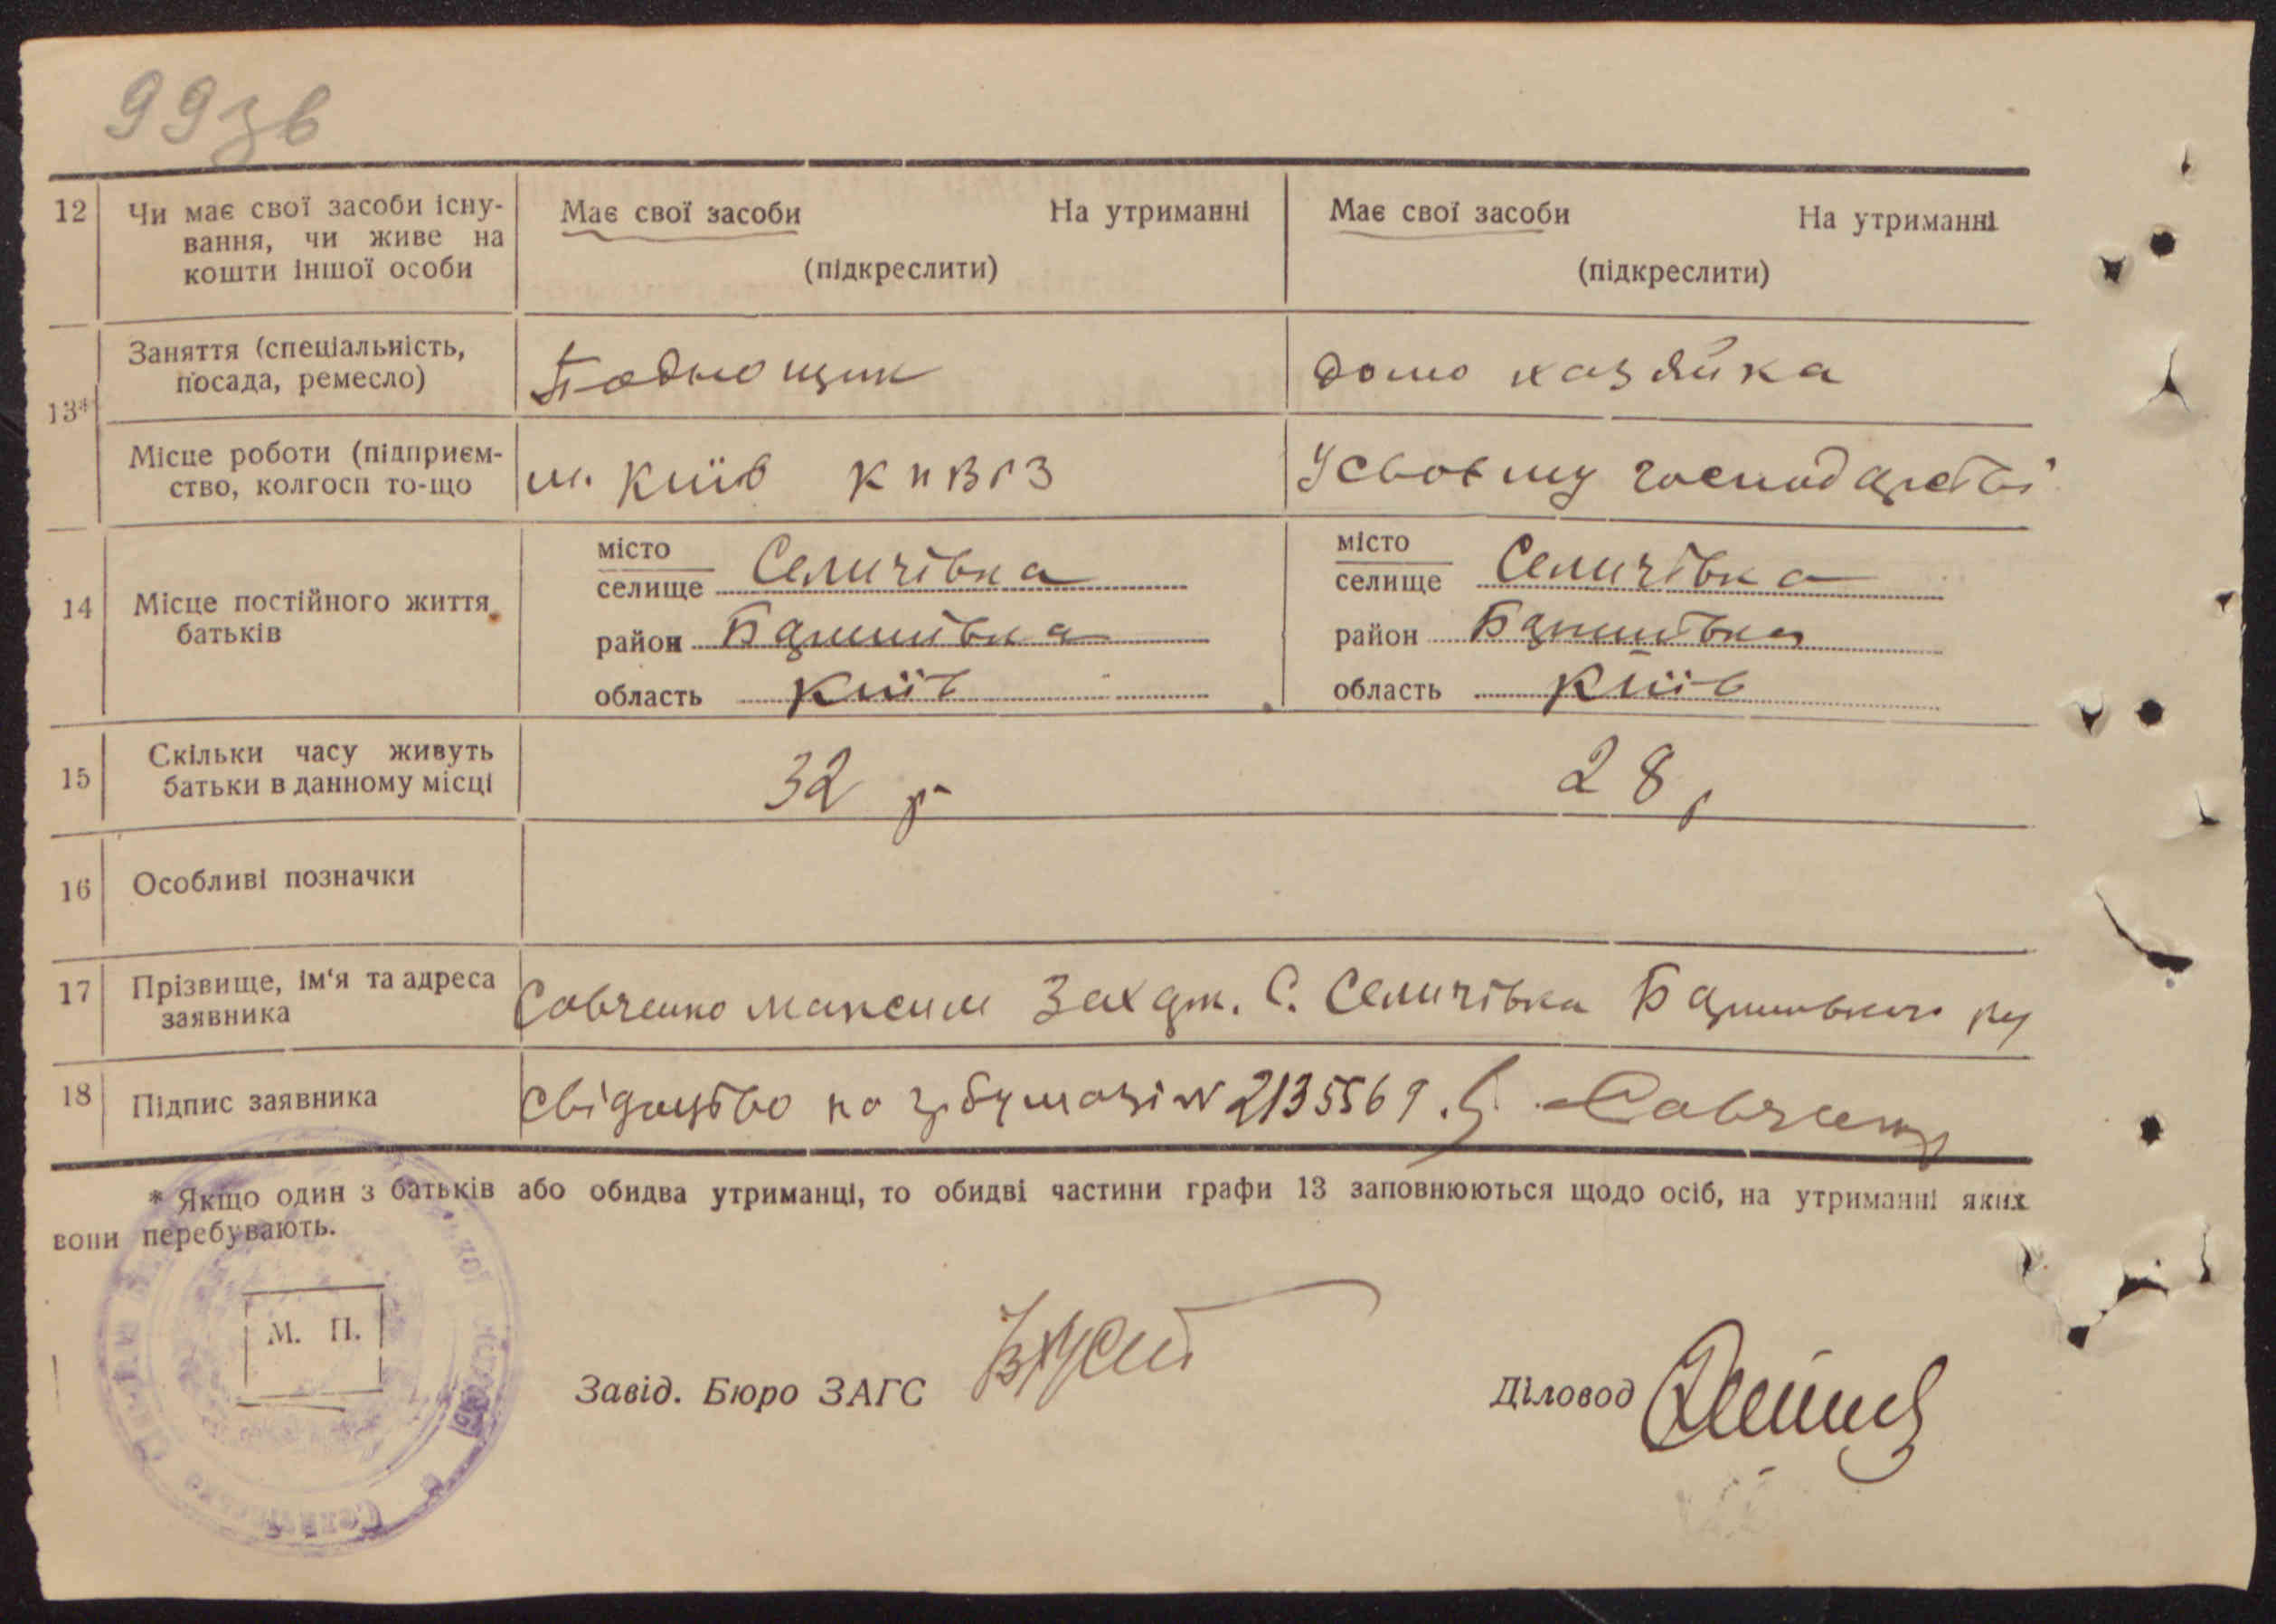 99зв
12 Чи має свої засоби існу-
вання, чи живе на
кошти іншої особи
Має свої засоби На утриманні
(підкреслити)
Має свої засоби На утриманні
(підкреслити)
13*
Заняття (спеціальність,
посада, ремесло)
домо хазяйка
Місце роботи (підприєм-
ство, колгосп то-що
м. Київ КПВРЗ
У своєму господарстві
14 Місце постійного життя
батьків
місто
селище Селичівка
район Баришівка
область Київ
місто
селище Селичівка
район Баришівка
область Київ
15 Скільки часу живуть
батьки в данному місці
32 р
28 р
16 Особливі позначки
17 Прізвище, ім‘я та адреса
заявника
Савченко Максим Захар. С. Селичівка Баришівського р-у
18 Підпис заявника
свідоцтво на гербумазі № 2135569. Савченко
* Якщо один з батьків або обидва утриманці, то обидві частини графи 13 заповнюються щодо осіб, на утриманні яких
вони перебувають.
М. П.
Завід. Бюро ЗАГС
Діловод